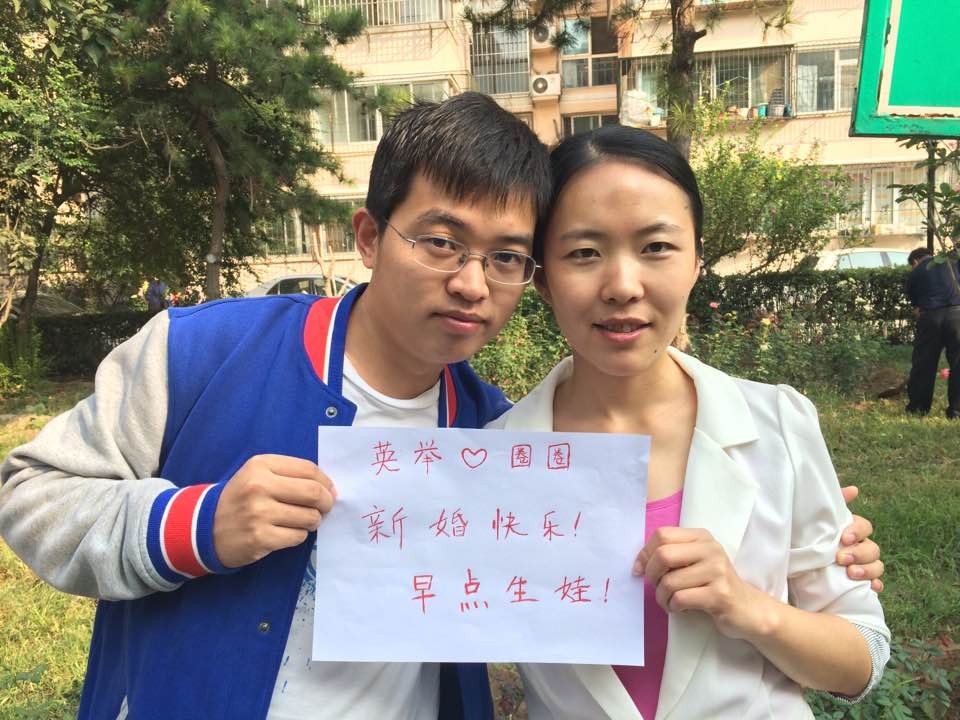 英举♡圈圈
新婚快乐!
早点生娃!